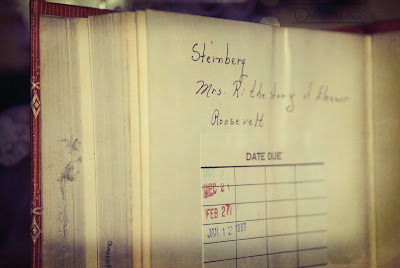 Steinberg
Mrs. R: the story of Eleanor
Roosevelt
DATE DUE
DEC 8
FEB 27
JAN 12 1987